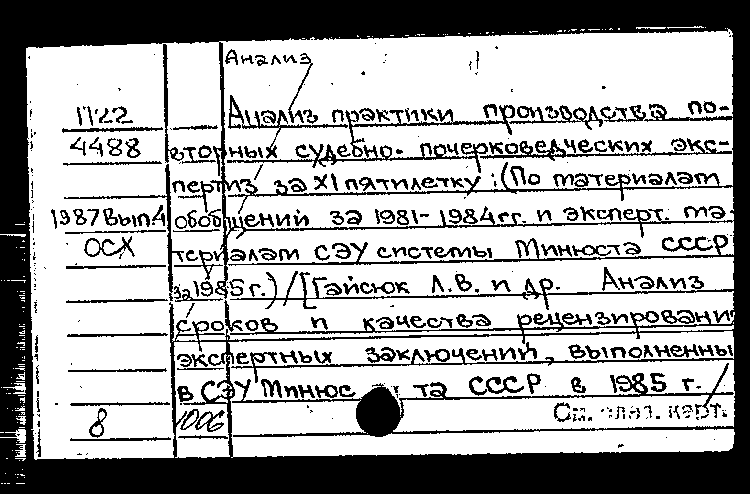 Анализ
1122 Анализ практики производства по-
4488 вторных судебно-почерковедческих экс-
пертиз за XI пятилетку: (По материалам
1987 Вып.4 обобщений за 1981-1984 гг. и эксперт. ма-
ОСХ териалам СЭУ системы Минюста СССР
за 1985 г.) / [Гайсюк Л.В. и др. Анализ
сроков и качества рецензировани
экспертных заключений, выполненны
в СЭУ Минюс та СССР в 1985 г. /
8 1006 См. след. карт.